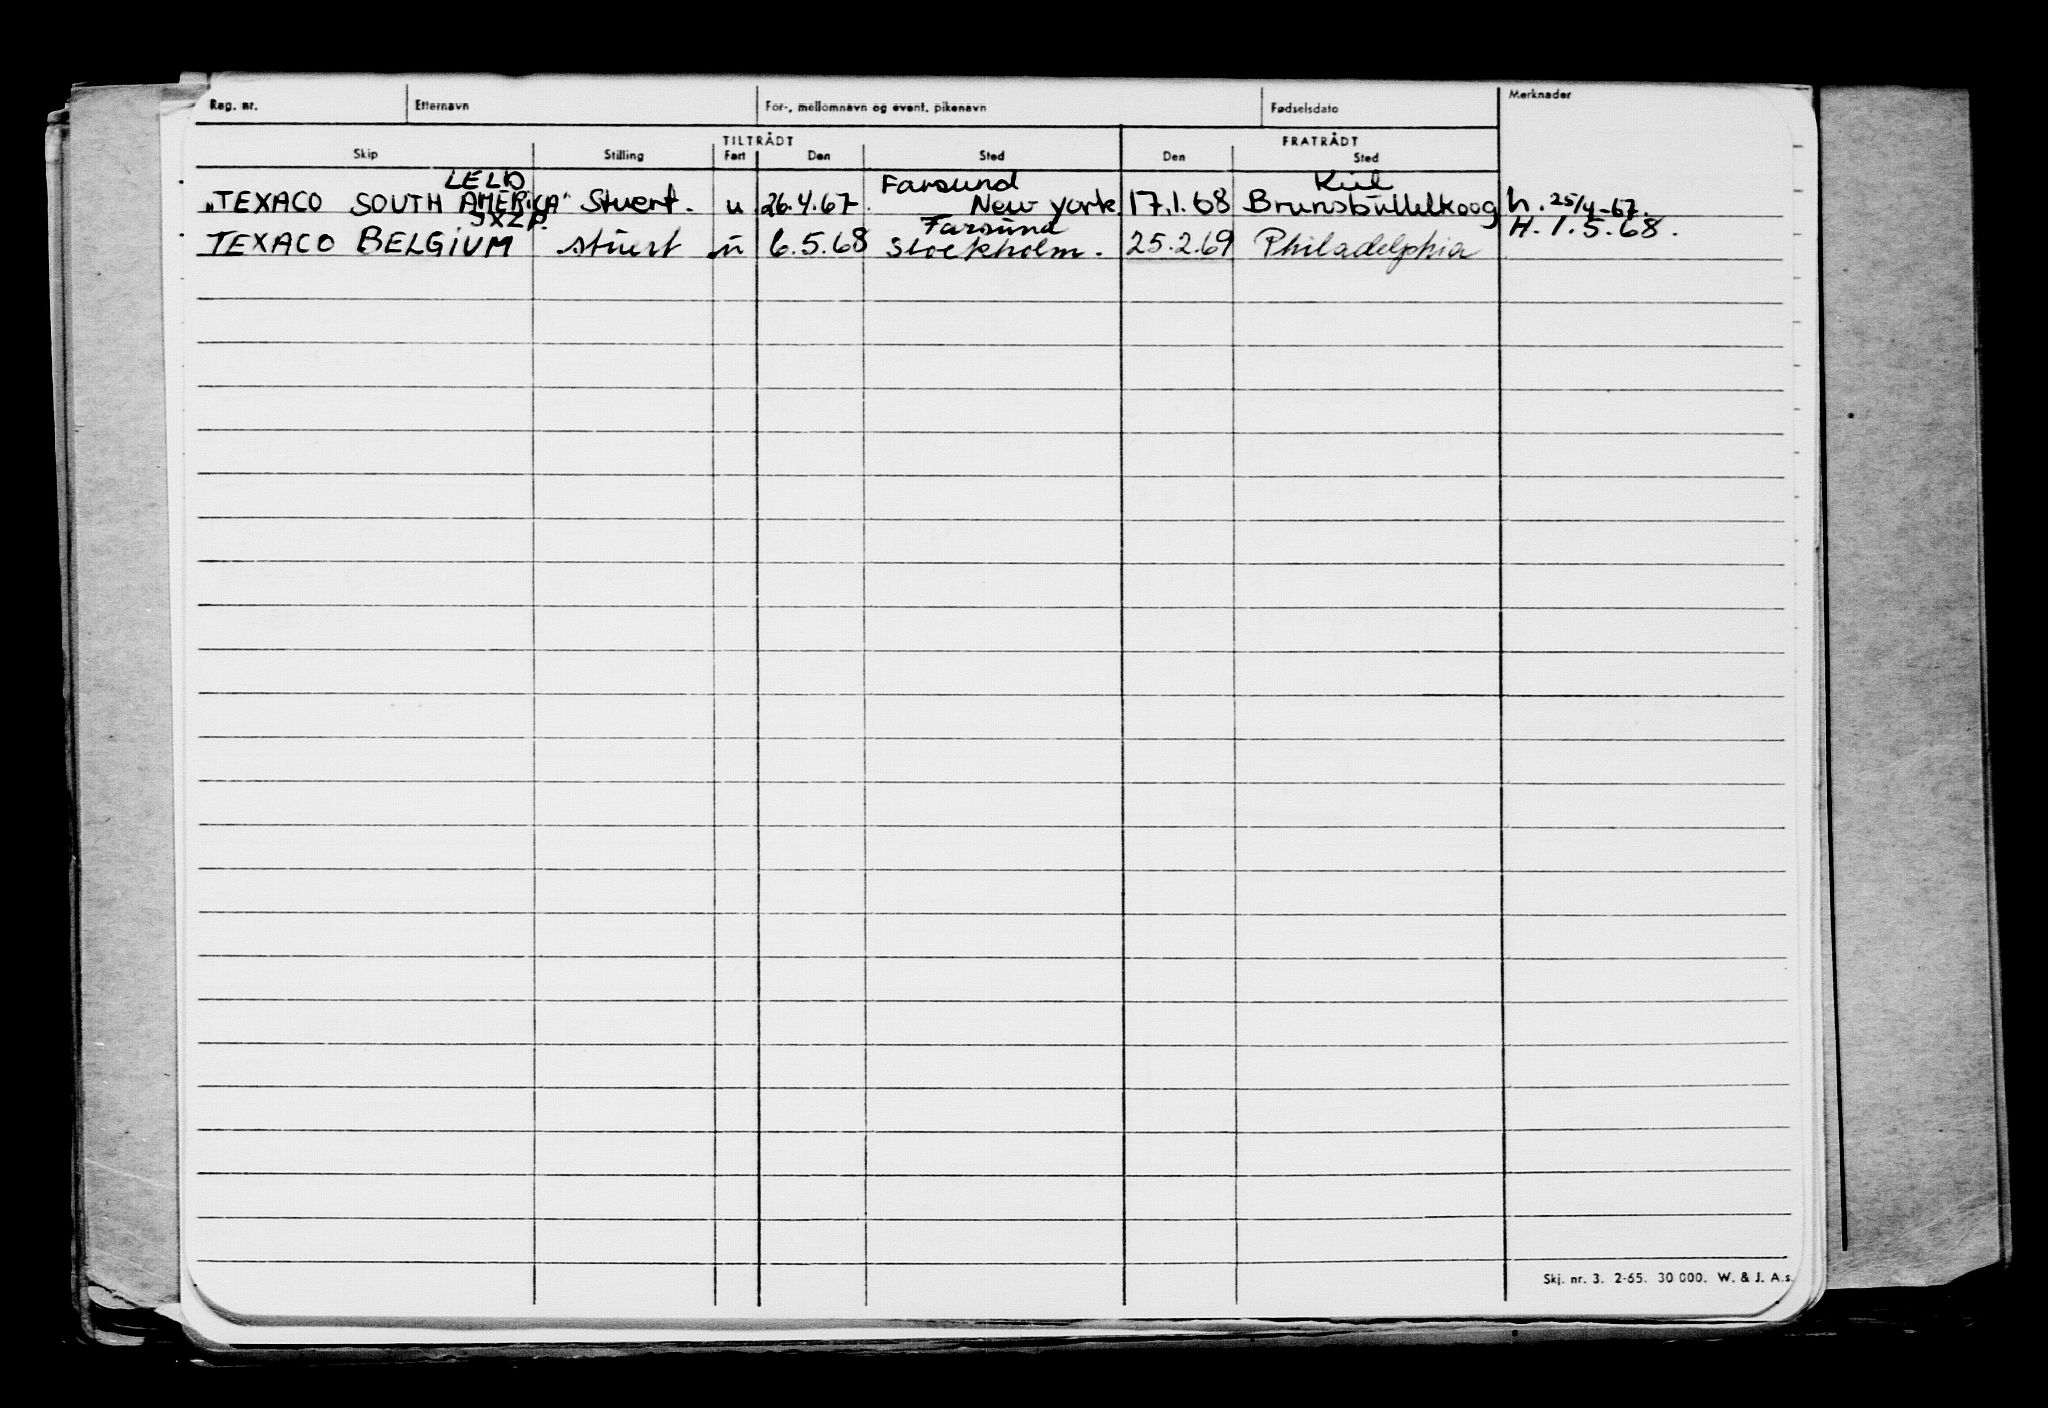 Reg. nr. Etternavn For-, mellomnavn og event. pikenavn Fødselsdato Merknader
TILTRÅDT FRATRÅDT
Skip Stilling Fart Den Sted Den Sted
LELD Farsund Kiel
"TEXACO SOUTH AMERICA" Stuert. u 26.4.67. New York 17.1.68 Brunsbüttelkoog h. 25/4-67.
JXZP. Farsund H. 1.5.68.
TEXACO BELGIUM stuert u 6.5.68 Stockholm. 25.2.69 Philadelphia
Skj. nr. 3. 2-65. 30 000. W. & J. A.s.